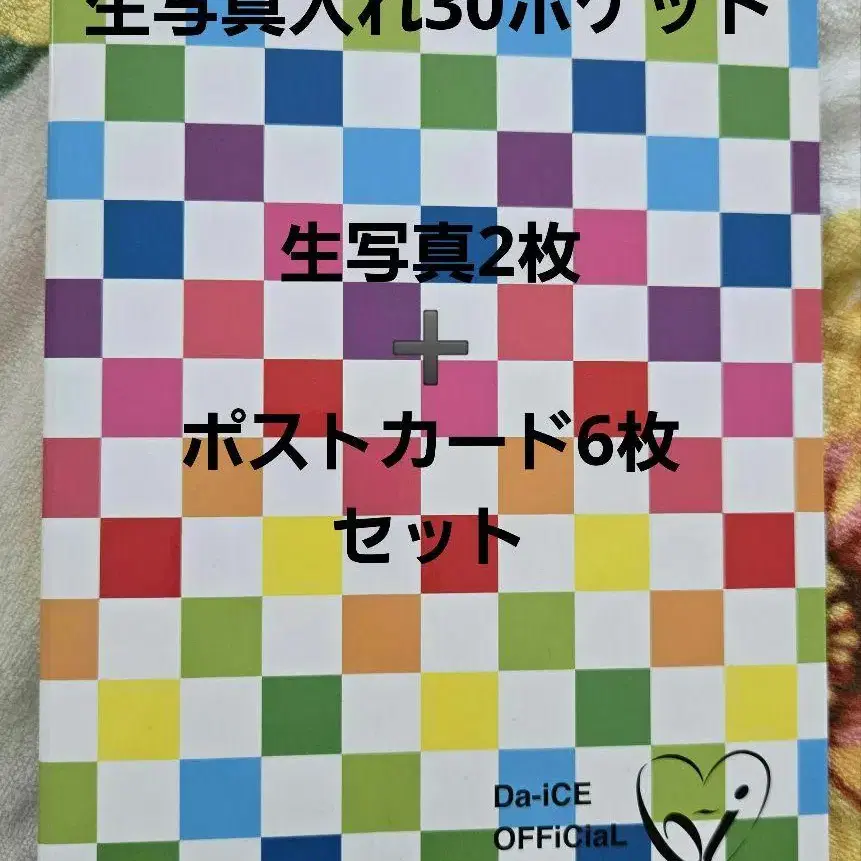 生写真入れ30ポケット
生写真2枚
➕
ポストカード6枚
セット
Da-iCE
OFFiCiaL